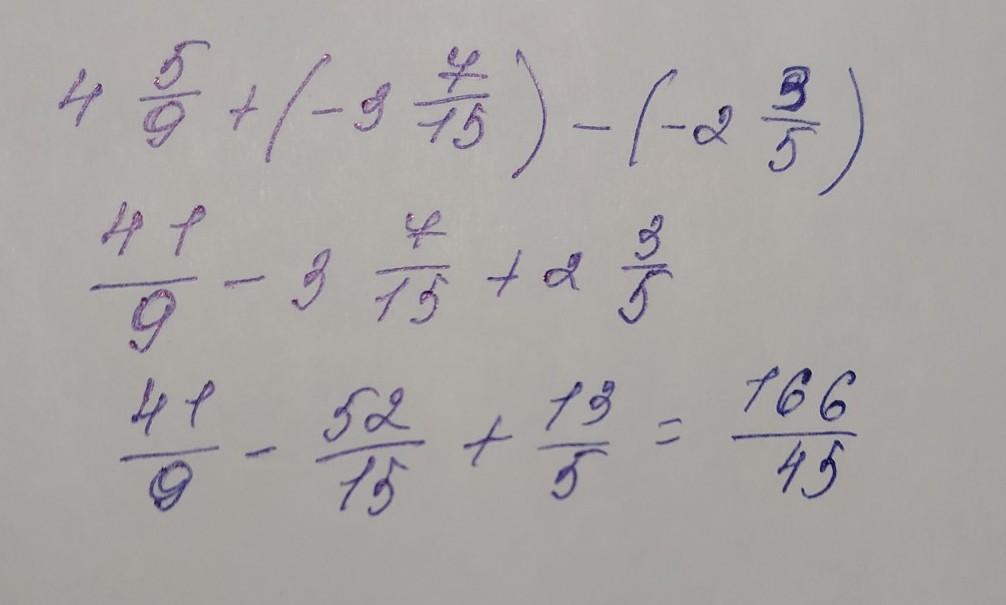 4 5/9 + (-3 7/15) - (-2 3/5)
41/9 - 3 7/15 + 2 3/5
41/9 - 52/15 + 13/5 = 166/45